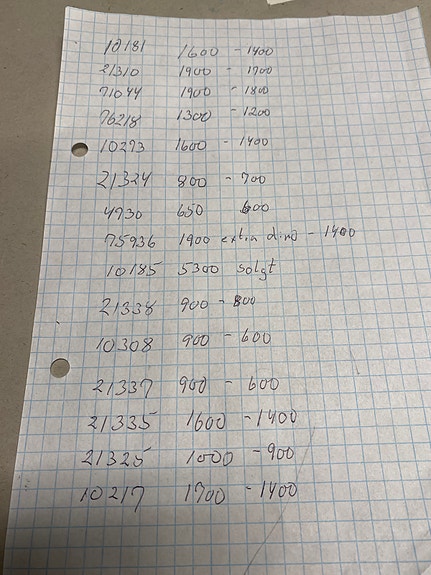 10181 1600 - 1400
21310 1900 - 1700
71044 1900 - 1800
76218 1300 - 1200
10273 1600 - 1400
21324 800 - 700
4730 650 600
75936 1900 extra dino - 1400
10185 5300 solgt
21338 900 - 800
10308 900 - 600
21337 900 - 600
21335 1600 - 1400
21325 1000 - 900
10217 1700 - 1400